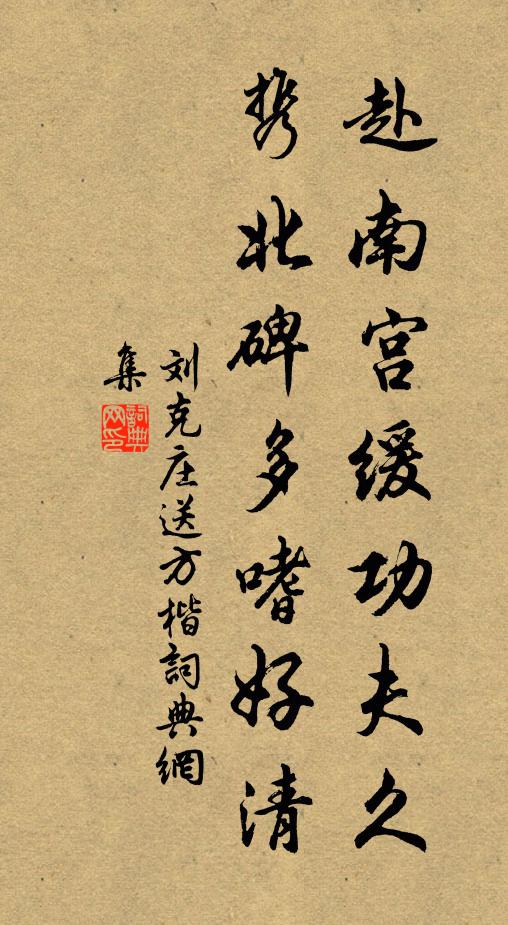 赴南宫缓功夫久
携北碑多嗜好清
刘克庄送方楷詞典網
集
詞典网印